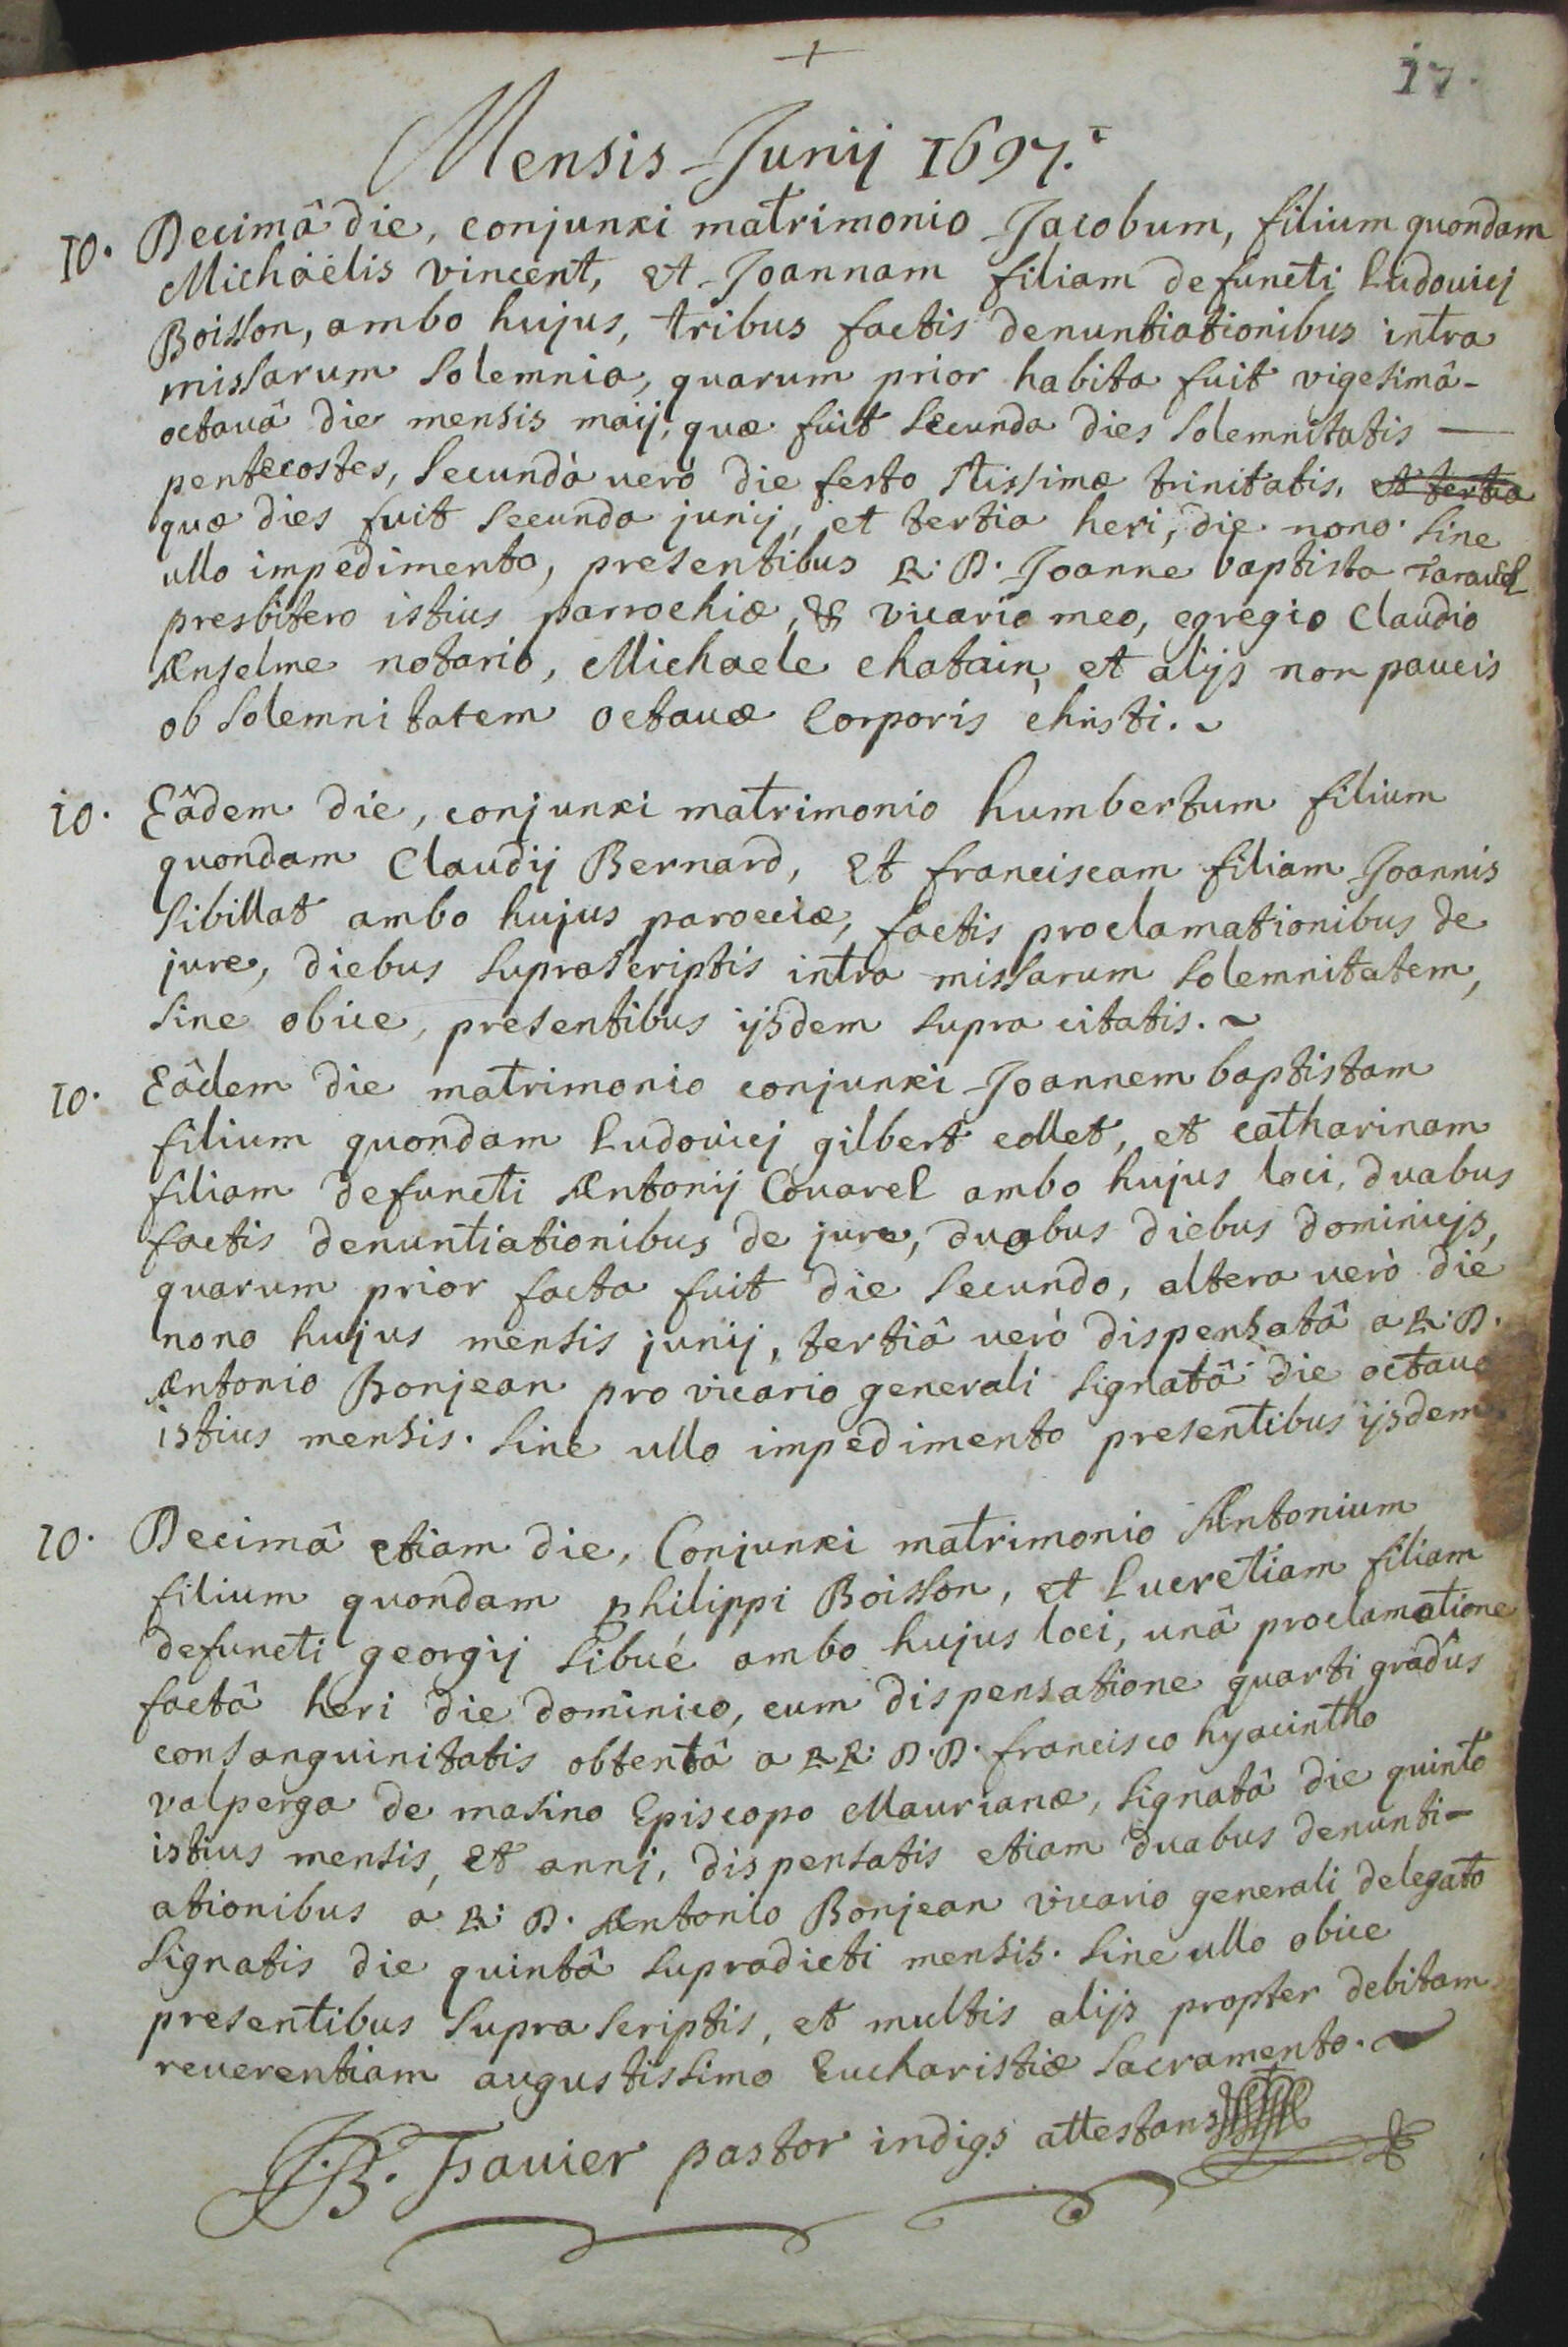 +
17.
Mensis Junij 1697.
10. Decimâ die, conjunxi matrimonio Jacobum, filium quondam
Michäelis vincent, et Joannam filiam defuncti Ludovicj
Boisson, ambo hujus, tribus factis denuntiationibus intra
missarum solemnia, quarum prior habita fuit vigesimâ-
octavâ die mensis maij, quæ fuit secunda dies solemnitatis —
pentecostes, secunda verò die festo stissimæ trinitatis, et tertia
quæ dies fuit secunda junij, et tertia heri, die nono. sine
ullo impedimento, presentibus R: D. Joanne baptista
presbitero istius parrochiæ, & vicario meo, egregio Claudio
Anselme notario, Michaele chatain, et alijs non paucis
ob solemnitatem octavæ Corporis christi.
10. Eâdem die, conjunxi matrimonio humbertum filium
quondam Claudij Bernard, et franciscam filiam Joannis
Sibillat ambo hujus paroeciæ, factis proclamationibus de
jure, diebus suprascriptis intra missarum solemnitatem,
sine obice, presentibus ijsdem supra citatis.
10. Eâdem die matrimonio conjunxi Joannem baptistam
filium quondam Ludovicj gilbert collet, et catharinam
filiam defuncti Antonij Couarel ambo hujus loci, duabus
factis denuntiationibus de jure, duobus diebus dominicjs,
quarum prior facta fuit die secundo, altera verò die
nono hujus mensis junij, tertiâ verò dispensatâ a R: D.
Antonio Bonjean pro vicario generali signatâ die octavo
istius mensis. sine ullo impedimento presentibus ijsdem.
10. Decimâ etiam die, Conjunxi matrimonio Antonium
filium quondam philippi Boisson, et Lucretiam filiam
defuncti georgij Sibué ambo hujus loci, unâ proclamatione
factâ heri die dominico, cum dispensatione quarti gradûs
consanguinitatis obtentâ a RR: D.D. francisco hyacintho
valperga de masino Episcopo Maurianæ, signatâ die quinto
istius mensis, et annj, dispensatis etiam duabus denunti-
ationibus a R: D. Antonio Bonjean vicario generali delegato
signatis die quintâ supradicti mensis. sine ullo obice
presentibus suprascriptis, et multis alijs propter debitam
reverentiam augustissimo Eucharistiæ sacramento.
J.B. Favier pastor indigs attestans